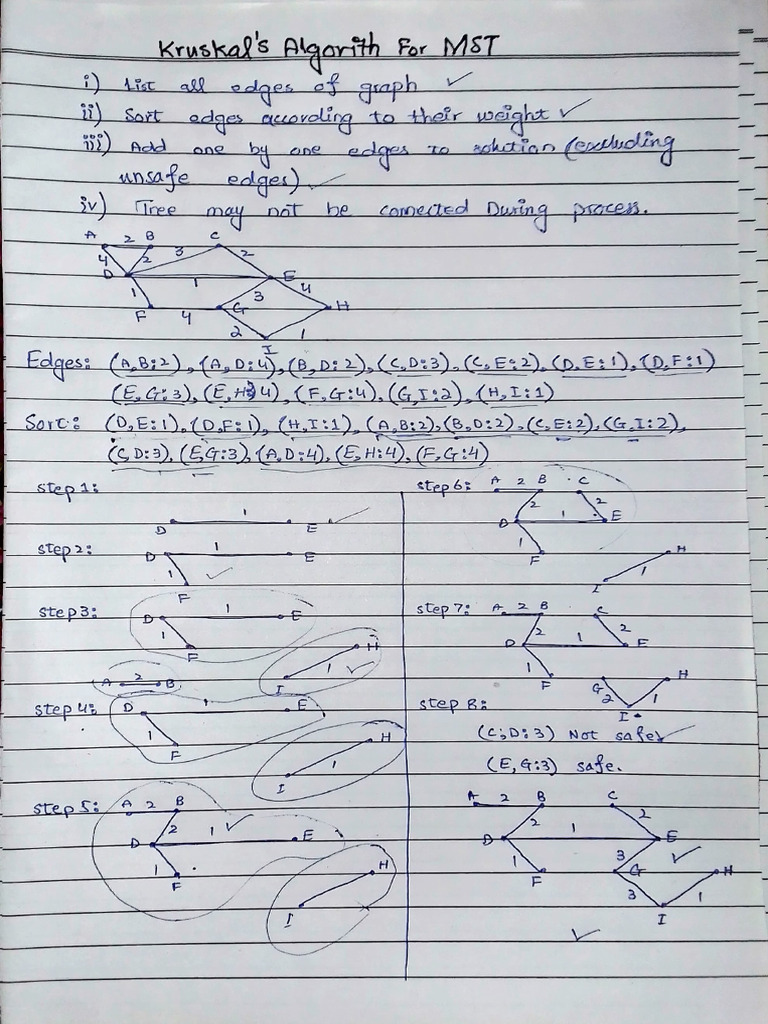 Kruskal's Algorith For MST
i) List all edges of graph ✓
ii) Sort edges according to their weight ✓
iii) Add one by one edges to solution (excluding
unsafe edges) ✓
iv) Tree may not be connected During process.
A 2 B 3 C
4 2 2
D 1 E
1 3 4
F 4 G H
2 1
I
Edges: (A,B:2), (A,D:4), (B,D:2), (C,D:3), (C,E:2), (D,E:1), (D,F:1)
(E,G:3), (E,H:4), (F,G:4), (G,I:2), (H,I:1)
Sort: (D,E:1), (D,F:1), (H,I:1), (A,B:2), (B,D:2), (C,E:2), (G,I:2),
(C,D:3), (E,G:3), (A,D:4), (E,H:4), (F,G:4)
step 1:
D 1 E ✓
step 2:
D 1 E
1 ✓
F
step 3:
D 1 E
1
F
H
1 ✓
I
A 2 B
step 4:
D 1 E
1
F
H
1
I
step 5:
A 2 B
2
D 1 ✓ E
1
F
H
I
step 6:
A 2 B C
2 2
D 1 E
1
F
H
1
I
step 7:
A 2 B C
2 2
D 1 E
1
F
G H
2 1
I
step 8:
(C,D:3) Not safe ✓
(E,G:3) safe.
A 2 B C
2 2
D 1 E
1 3 ✓
F G H
3 1
I
✓